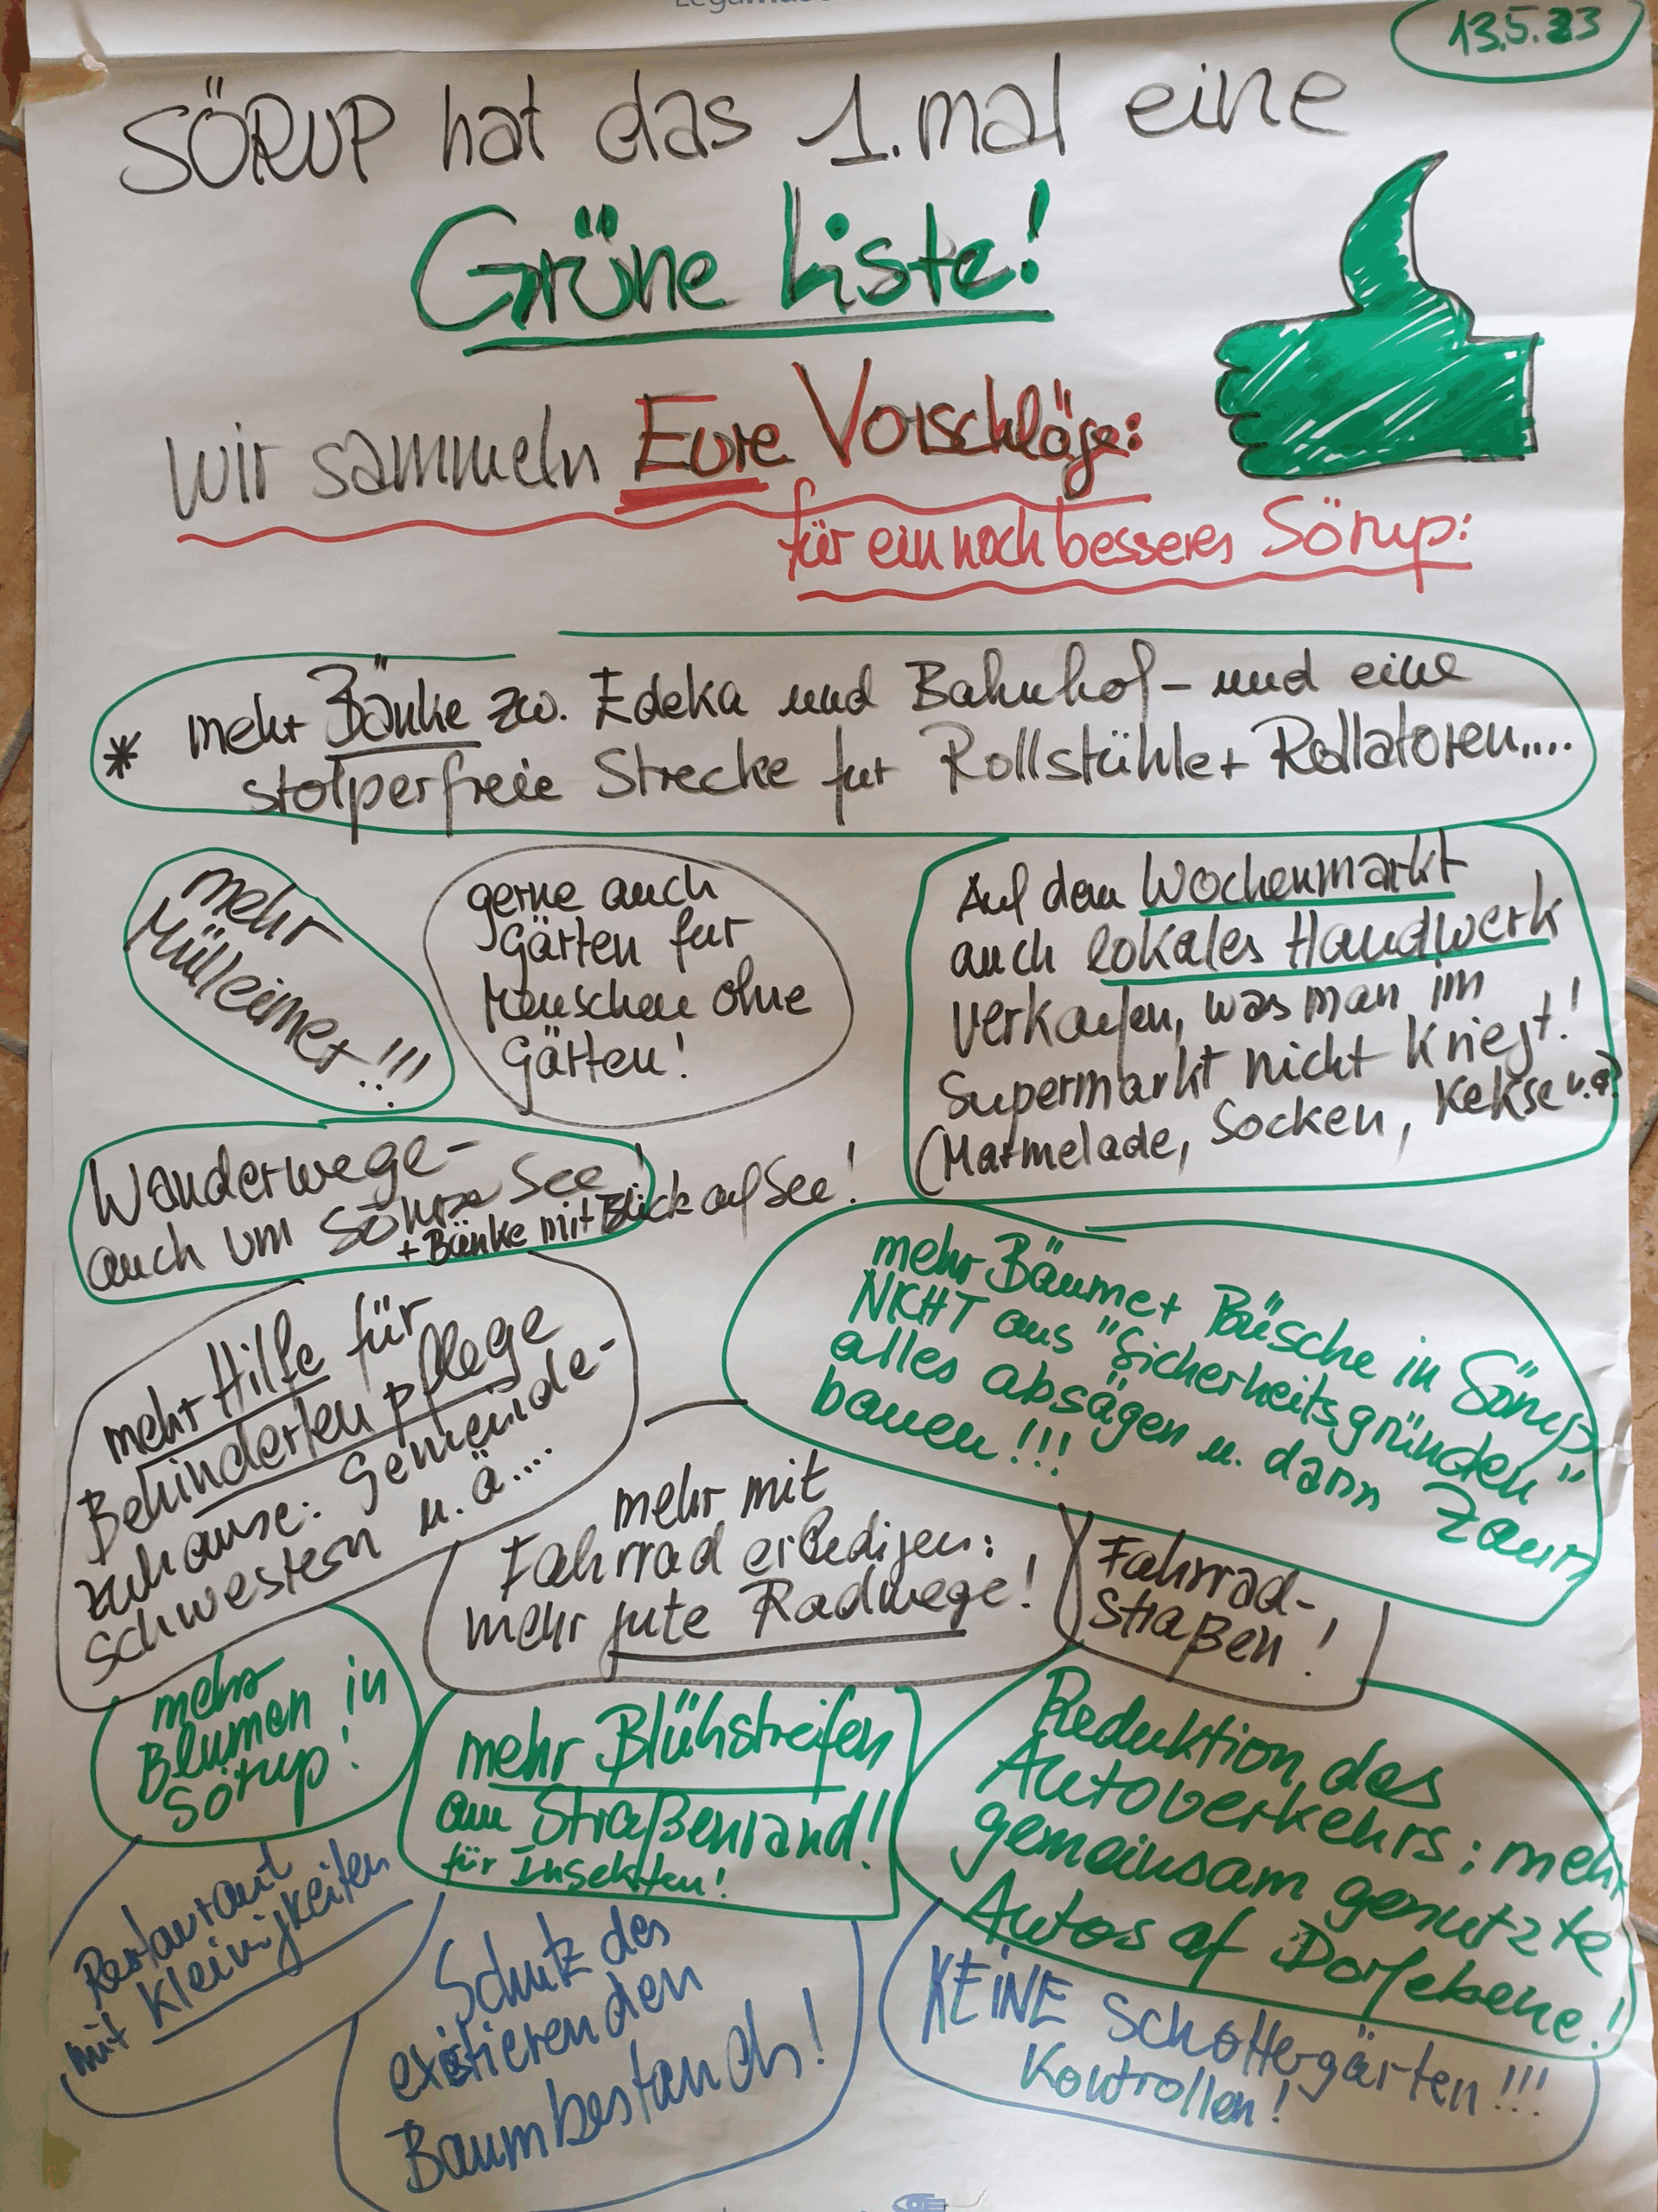 13.5.23
SÖRUP hat das 1. mal eine
Grüne Liste!
wir sammeln Eure Vorschläge:
für ein noch besseres Sörup:
* mehr Bänke zw. Edeka und Bahnhof - und eine
stolperfreie Strecke für Rollstühle + Rollatoren....
mehr
Mülleimer!!!
gerne auch
Gärten für
Menschen ohne
Gärten!
Auf dem Wochenmarkt
auch lokales Handwerk
verkaufen, was man im
Supermarkt nicht kriegt!
(Marmelade, Socken, Kekse u.a?
Wanderwege -
auch um See!
+ Bänke mit Blick auf See!
mehr Bäume + Büsche in Sörup
NICHT aus "Sicherheitsgründen"
alles absägen u. dann Zaun
bauen!!!
mehr Hilfe für
Behindertenpflege
zuhause: Gemeinde-
schwestern u. ä....
mehr mit
Fahrrad erledigen:
mehr gute Radwege!
Fahrrad-
straßen!
mehr
Blumen in
Sörup!
mehr Blühstreifen
am Straßenrand!
für Insekten!
Reduktion des
Autoverkehrs; mehr
gemeinsam genutzte
Autos af Dorfebene!
Restaurant
mit Kleinigkeiten
Schutz des
existierenden
Baumbestands!
KEINE Schottergärten!!!
Kontrollen!